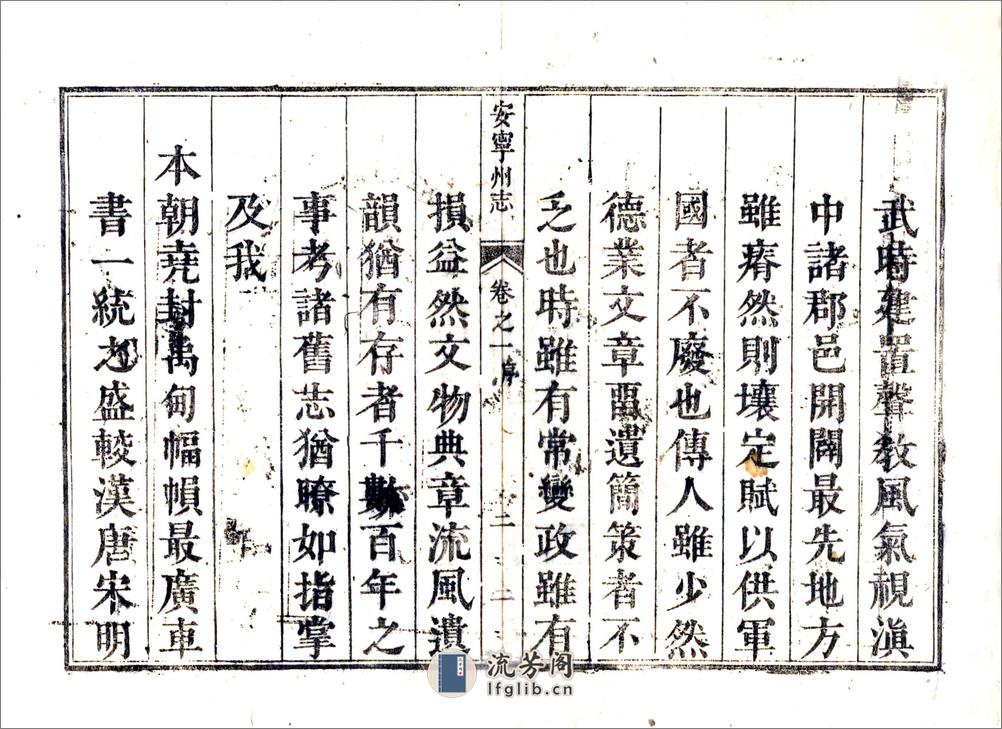 武時建置聲教風氣視滇
中諸郡邑開闢最先地方
雖瘠然則壤定賦以供軍
國者不廢也傳人雖少然
德業文章畱遺簡策者不
乏也時雖有常變政雖有
安寧州志
卷之一
序
二
損益然文物典章流風遺
韻猶有存者千數百年之
事考諸舊志猶瞭如指掌
及我
本朝堯封禹甸幅幀最廣車
書一統之盛較漢唐宋明
流芳阁
lfglib.cn